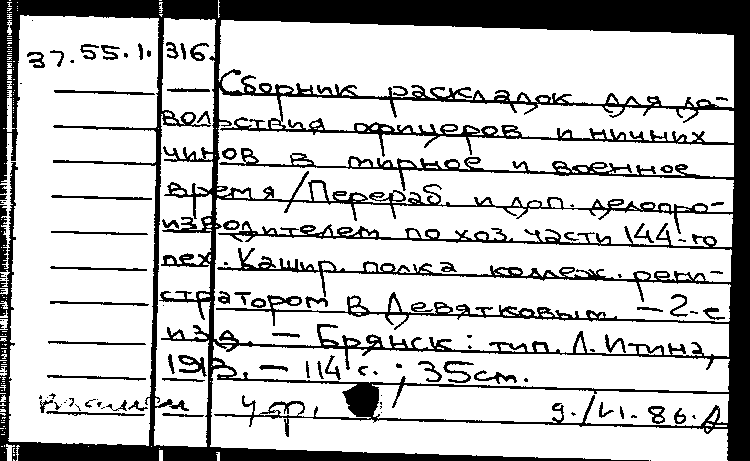 37.55.1.316.
Сборник раскладок для до-
вольствия офицеров и нижних
чинов в мирное и военное
время/Перераб. и доп. делопро-
изводителем по хоз. части 144-го
пех. Кашир. полка коллеж. реги-
стратором В Девятковым. – 2-е
изд. – Брянск: тип. Л. Итина,
1913. – 114 с. ; 35см.
взамен 9./VI.86.